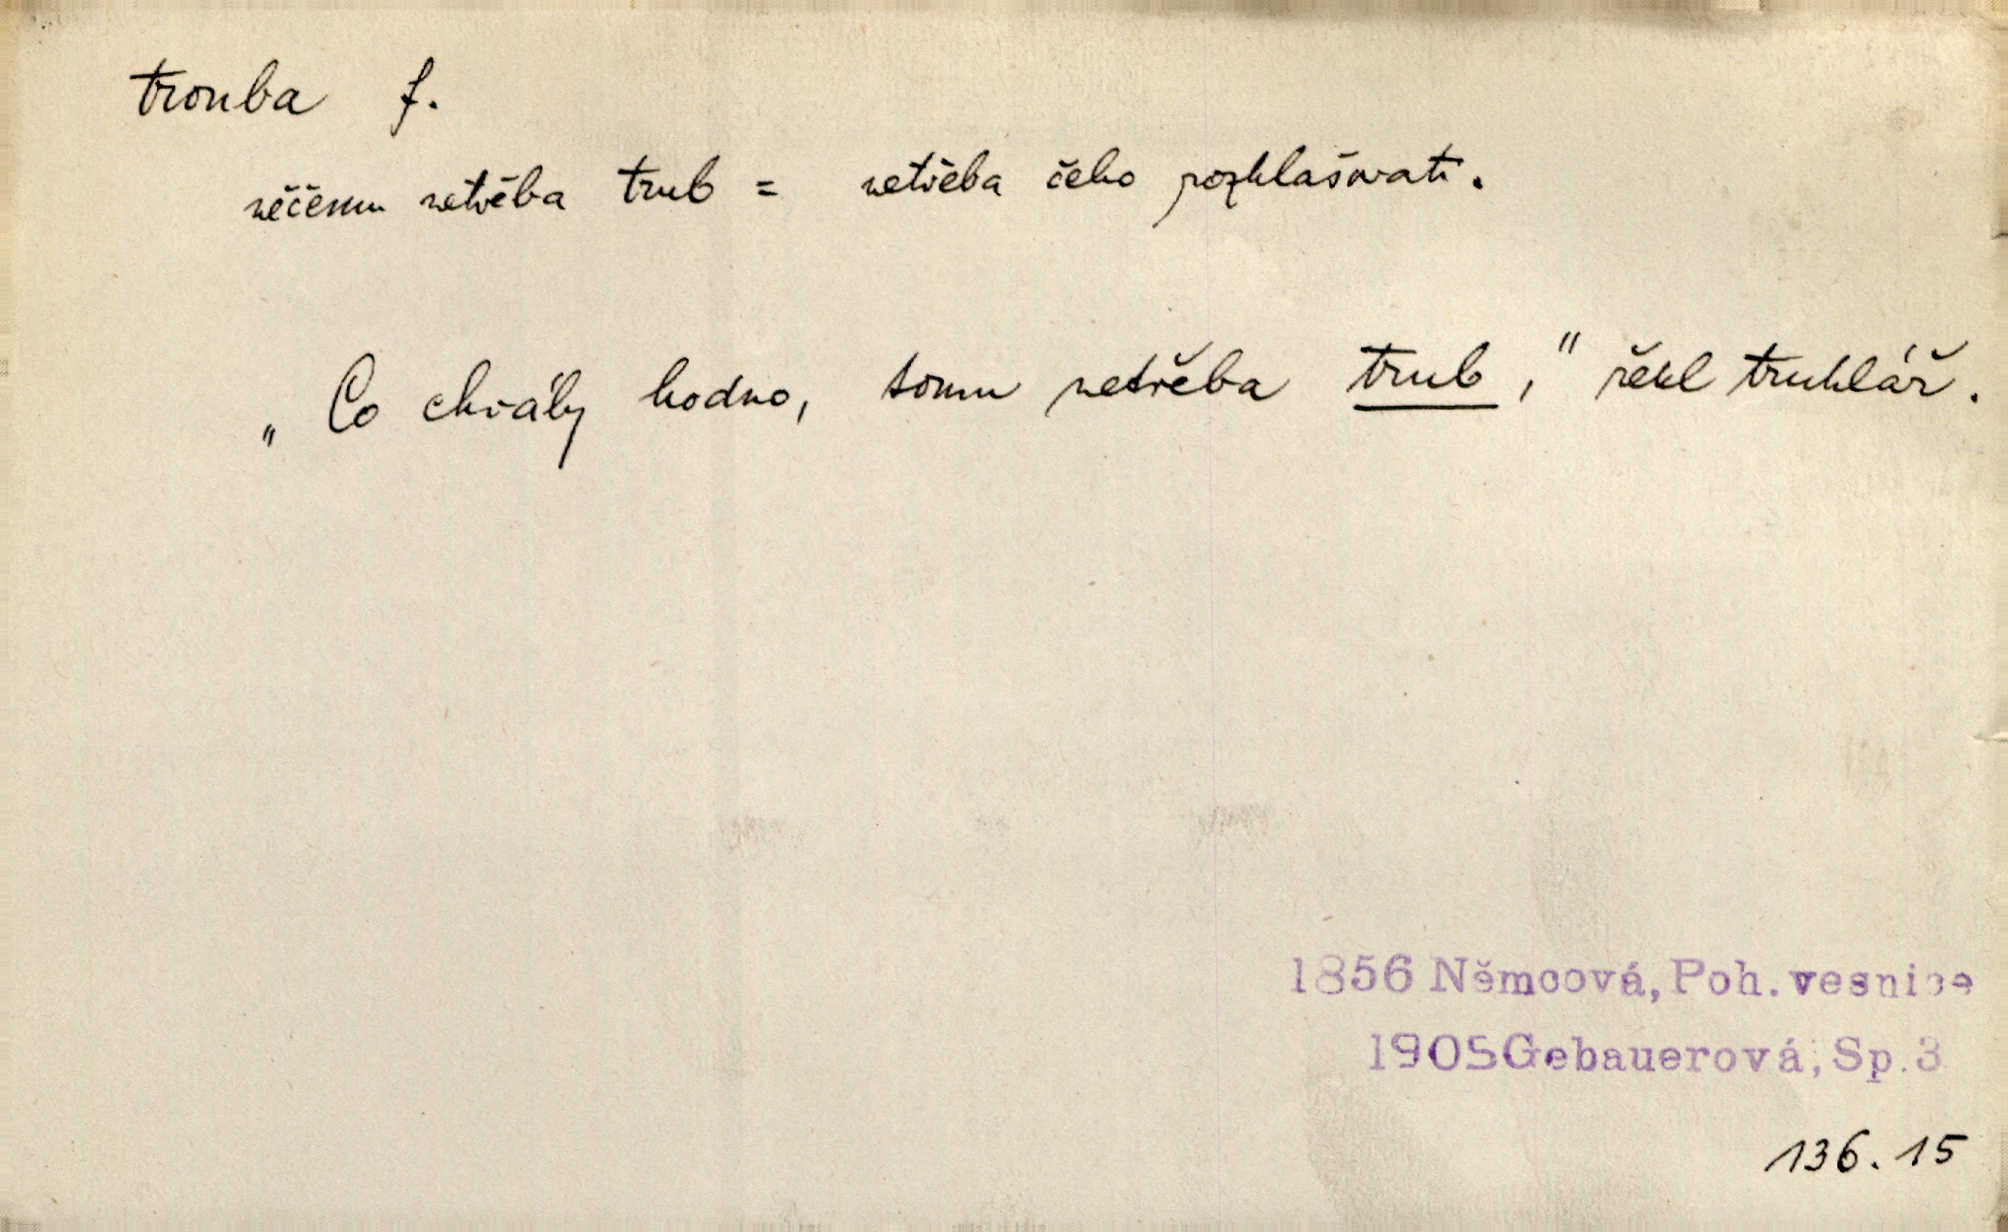 trouba f.
něčemu netřeba trub = netřeba čeho rozhlašovati.
„Co chvály hodno, tomu netřeba trub," řekl truhlář.
1856 Němcová, Poh. vesnice
1905 Gebauerová, Sp.3
136.15